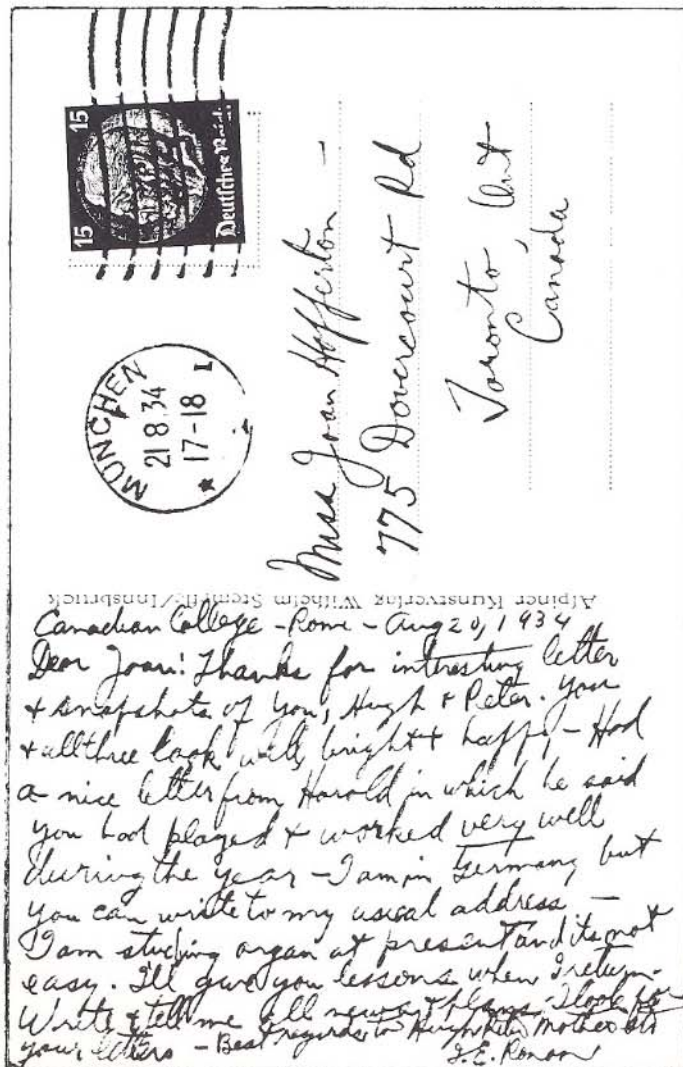 15 15
Deutsches Reich
MÜNCHEN
21 8.34
17-18
Miss Joan Hefferton —
775 Dovercourt Rd
Toronto, Ont
Canada
Alpiner Kunstverlag Wilhelm Stempfle/Innsbruck
Canadian College - Rome - Aug 20, 1934
Dear Joan! Thanks for interesting letter
+ snapshots of you, Hugh & Peter. You
+ all three look well, bright + happy - Had
a nice letter from Harold in which he said
you had played & worked very well
during the year - I am in Germany but
you can write to my usual address —
I am studying organ at present and its not
easy. I'll give you lessons when I return -
Write & tell me all news + plans - I look for
your letters - Best regards to Hugh Peter Mother
J.E. Ronan